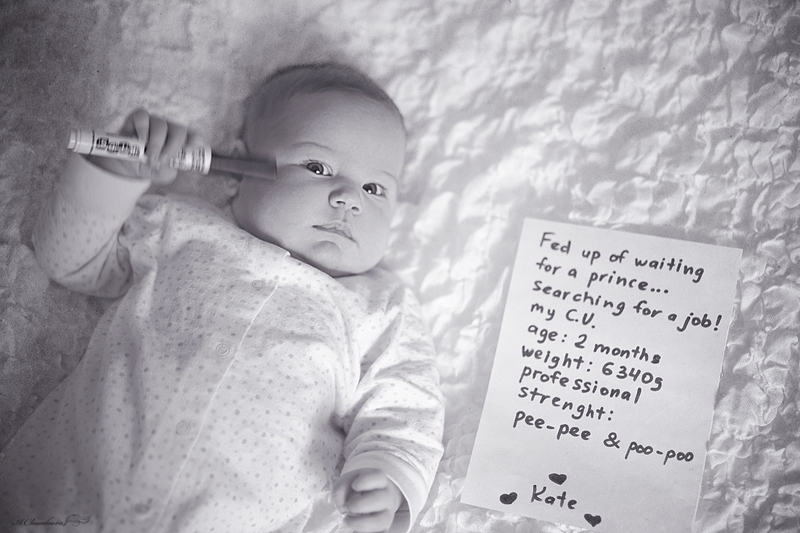 Fed up of waiting
for a prince...
searching for a job!
my C.V.
age: 2 months
weight: 6340g
professional
strenght:
pee-pee & poo-poo
Kate